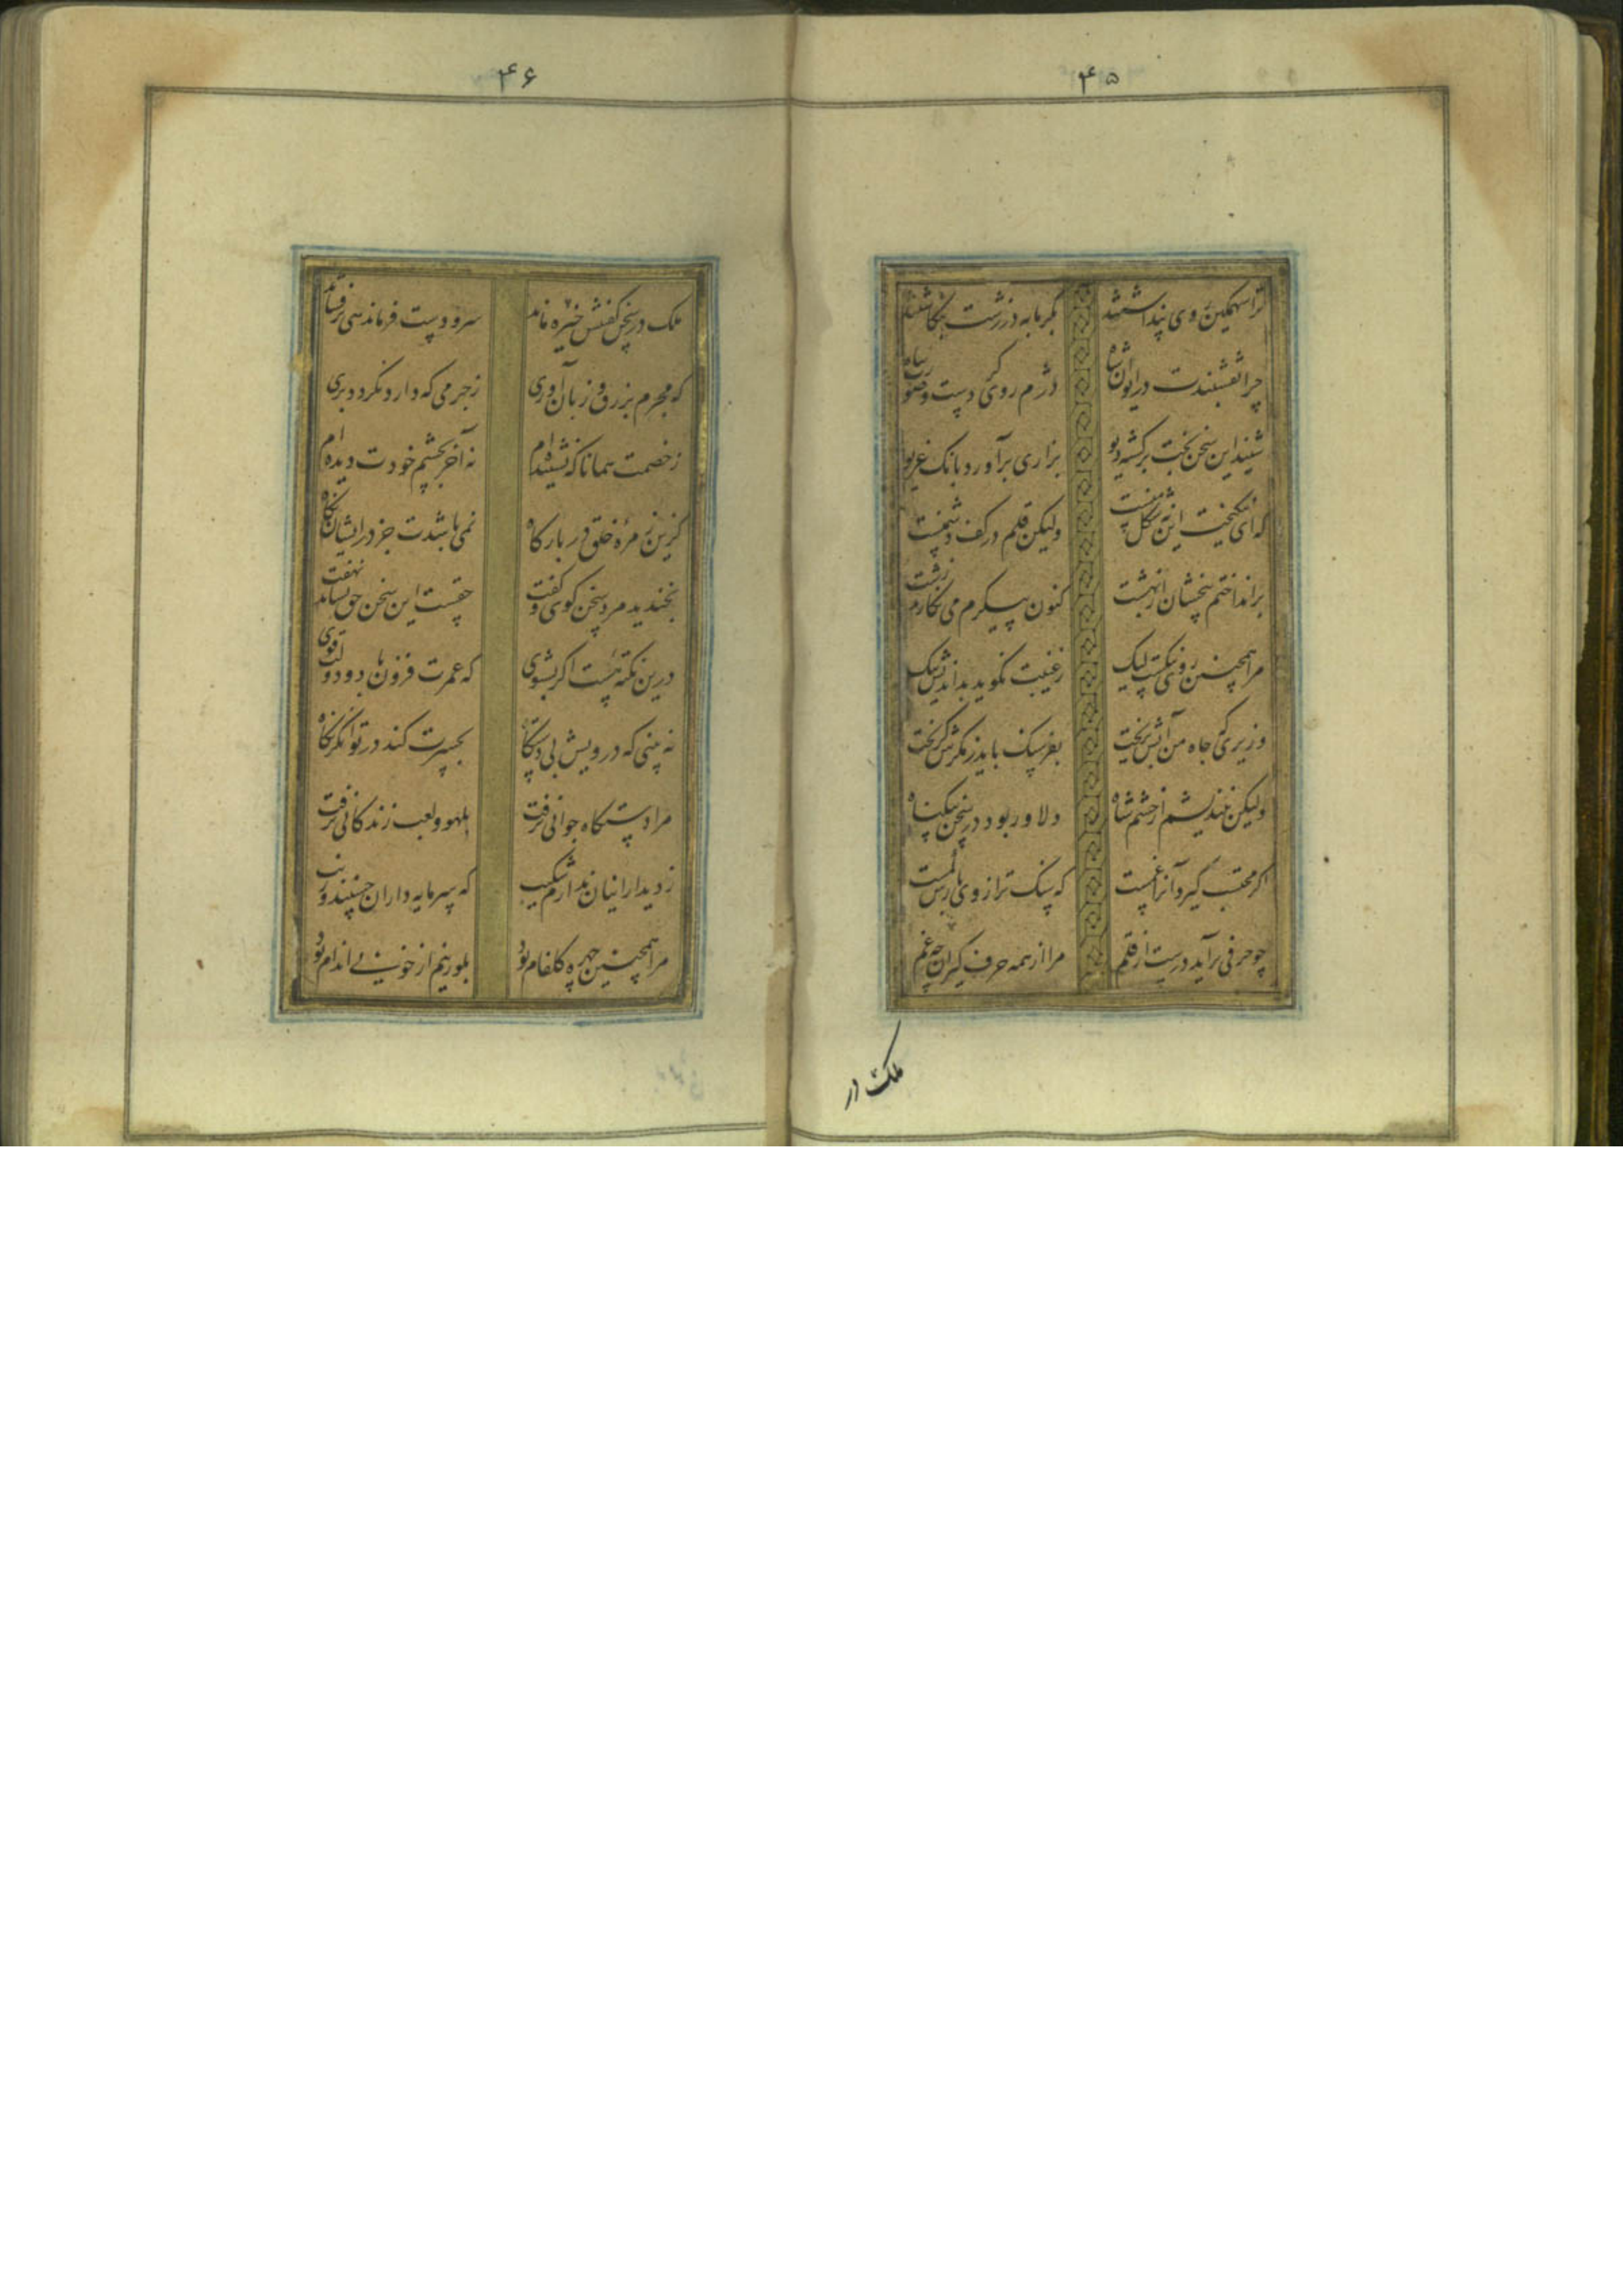 ۴۵
ترا سهمگین روی پنداشتند
بگرمابه در زشت بنگاشتند
چرا نقشبندت در ایوان شاه
دژم روی کردست و
شنید این سخن بخت برگشته دیو
بزاری برآورد بانگ غریو
که ای نیکبخت این نه شکل منست
ولیکن قلم در کف دشمنست
برانداختم بیخشان از بهشت
کنون پیکرم می نگارند زشت
مرا همچنین روی نیکست لیک
ز غیبت نگوید بداندیش نیک
وزیری که جاه من آبش بریخت
بفرسنگ باید ز مکرش گریخت
ولیکن نیندیشم از خشم شاه
دلاور بود در سخن بیگناه
اگر محتسب گیرد آنرا غمست
که سنگ ترازوی بارش کمست
چو حرفی برآید درست از قلم
مرا از همه حرف گیران چه غم
ملک در
۴۶
ملک در سخن گفتنش خیره ماند
سر و دست فرماندهی برفشاند
که مجرم بزرق و زبان آوری
ز جرمی که دارد نگردد بری
ز خصمت همانا که نشنیده ام
نه آخر بچشم خودت دیده ام
کزین زمره خلق در بارگاه
نمی باشدت جز در ایشان نگاه
بخندید مرد سخن گوی و گفت
حقست این سخن حق نشاید نهفت
درین نکته هست اگر بشنوی
که عمرت فزون باد و دولت قوی
نه بینی که درویش بی دستگاه
بحسرت کند در توانگر نگاه
مرا دستگاه جوانی برفت
بلهو و لعب زندگانی برفت
ز دیدار اینان ندارم شکیب
که سرمایه داران حسنند و زیب
مرا همچنین چهره گلفام بود
بلورینم از خوبی اندام بود